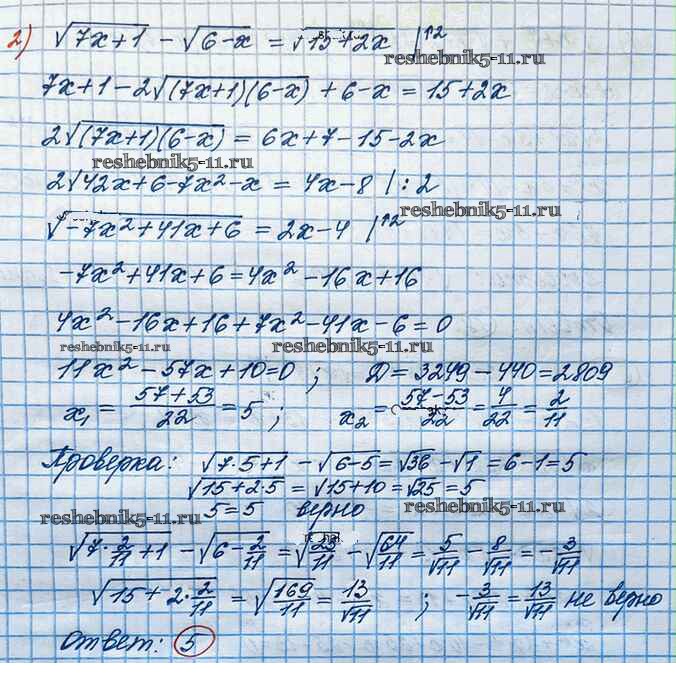 2) √(7x+1) − √(6−x) = √(15+2x) |↑2
reshebnik5-11.ru
7x+1−2√((7x+1)(6−x)) + 6−x = 15+2x
2√((7x+1)(6−x)) = 6x+7−15−2x
reshebnik5-11.ru
2√(42x+6−7x²−x) = 4x−8 | : 2
reshebnik5-11.ru
√(−7x²+41x+6) = 2x−4 |↑2
−7x²+41x+6=4x²−16x+16
4x²−16x+16+7x²−41x−6=0
reshebnik5-11.ru reshebnik5-11.ru
11x²−57x+10=0 ; D=3249−440=2809
x₁ = (57+53)/22 = 5 ; x₂ = (57−53)/22 = 4/22 = 2/11
Проверка: √(7·5+1) − √(6−5) = √36 − √1 = 6−1=5
√(15+2·5) = √(15+10) = √25 = 5
reshebnik5-11.ru reshebnik5-11.ru
5=5 верно
√(7·2/11+1) − √(6−2/11) = √(25/11) − √(64/11) = 5/√11 − 8/√11 = −3/√11
√(15+2·2/11) = √(169/11) = 13/√11 ; −3/√11 = 13/√11 не верно
Ответ: 5